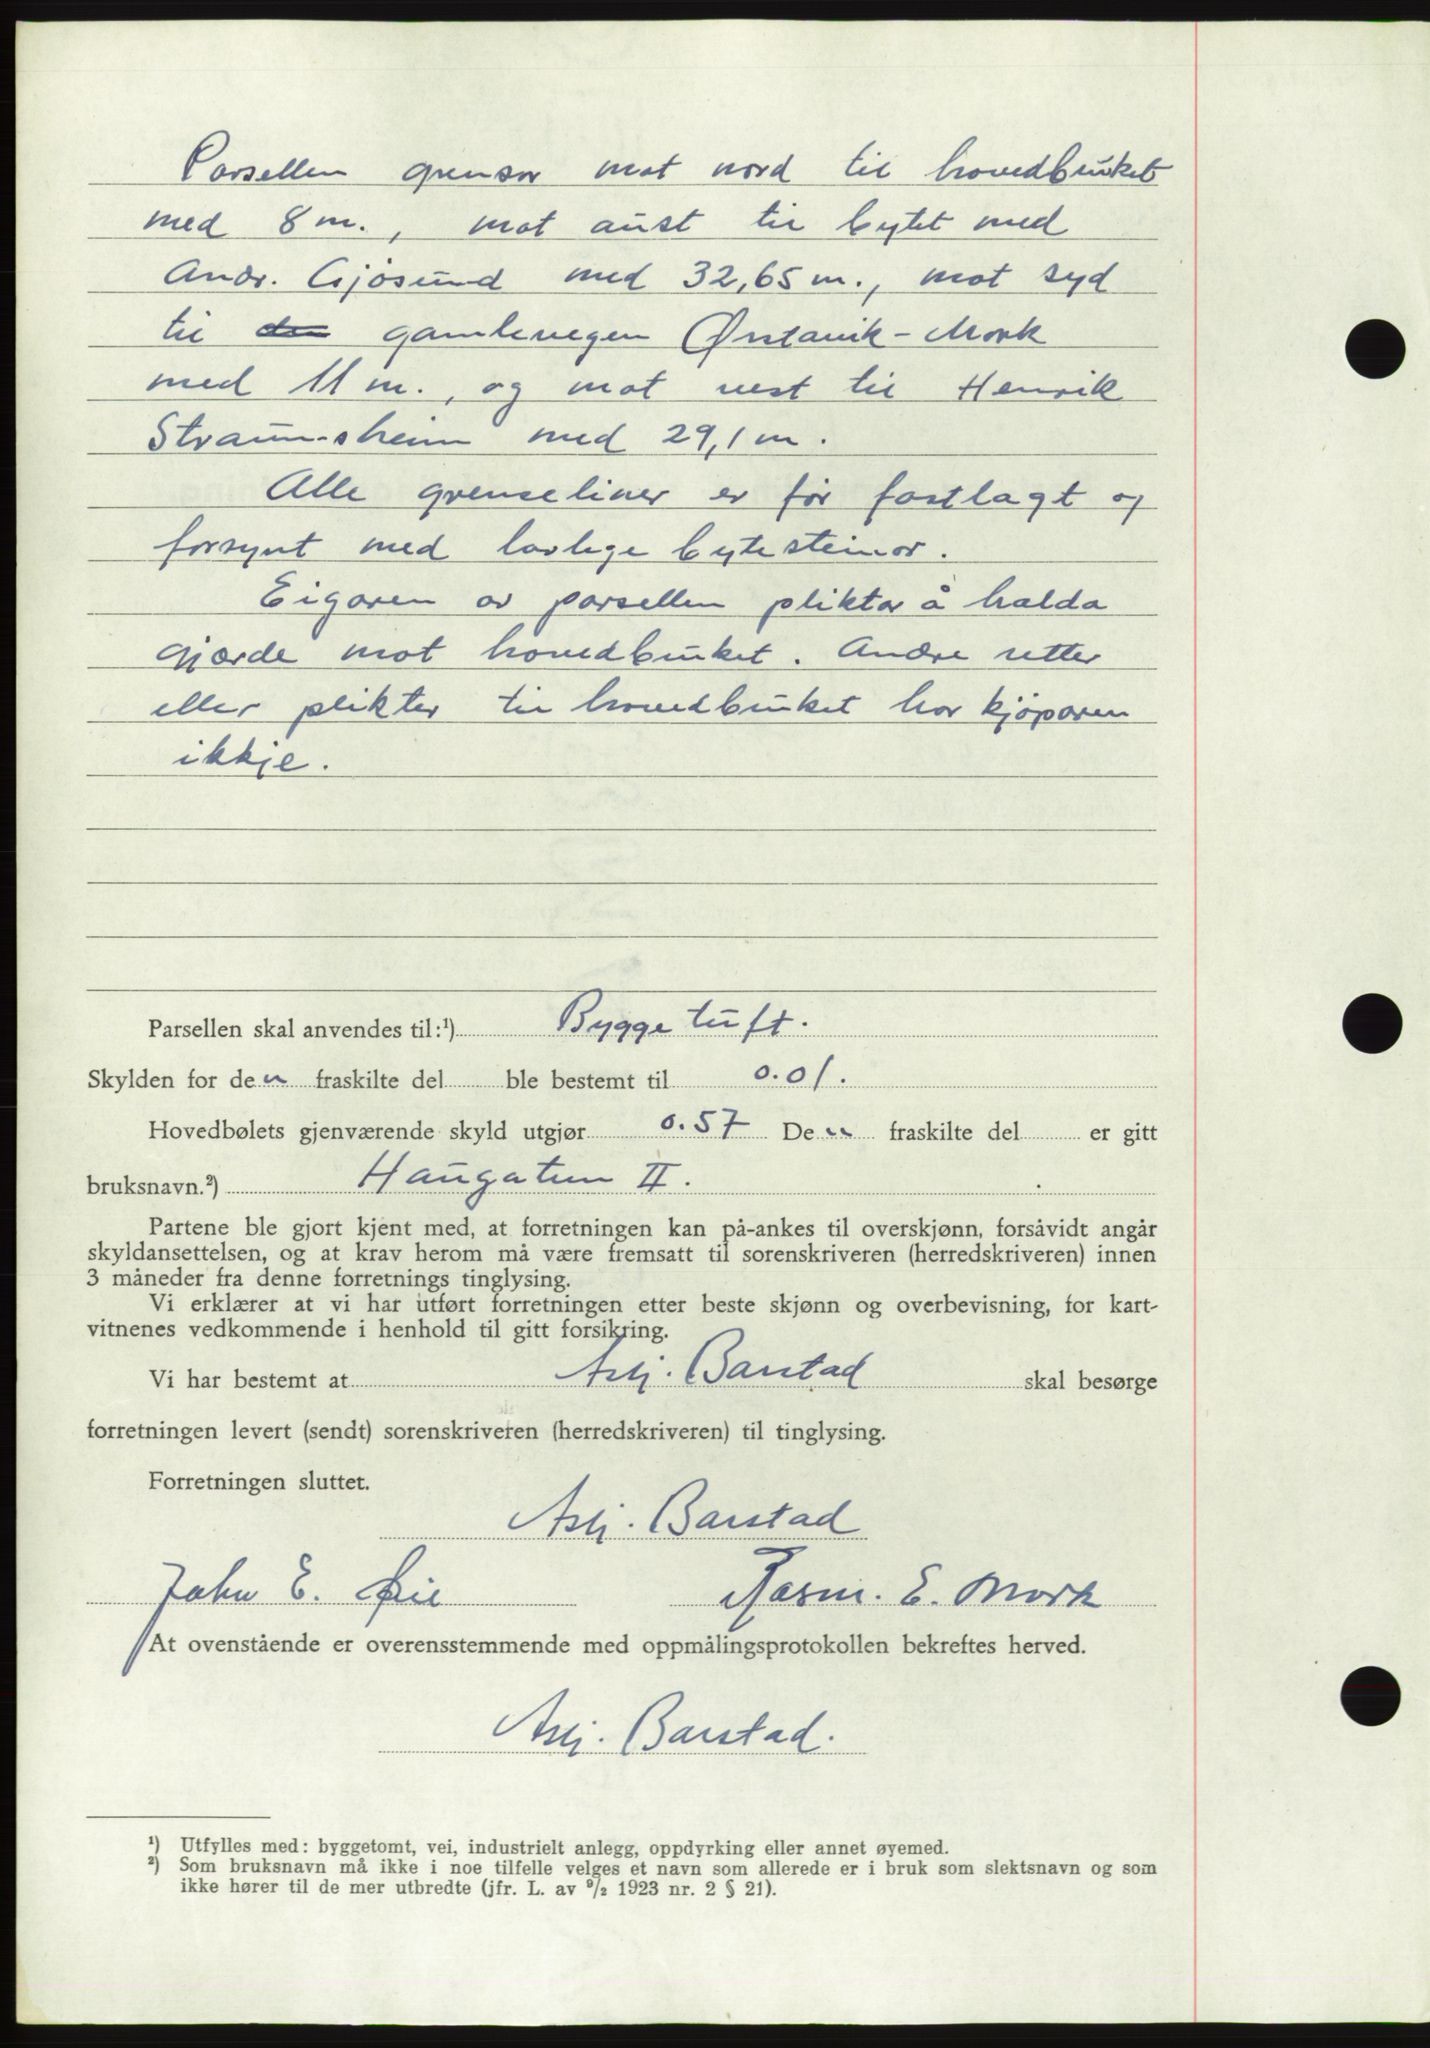 Parsellen grensar mot nord til hovedbruket
med 8 m., mot aust til bytet med
Andr. Gjøsund med 32,65 m., mot syd
til den gamlevegen Ørstavik - Mork
med 11 m., og mot vest til Henrik
Straumsheim med 29,1 m.
Alle grenseliner er før fastlagt og
forsynt med lovlege bytesteinar.
Eigaren av parsellen pliktar å halda
gjærde mot hovedbruket. Andre retter
eller plikter til hovedbruket har kjøparen
ikkje.
Parsellen skal anvendes til:¹) Byggetuft.
Skylden for den fraskilte del ble bestemt til 0.01.
Hovedbølets gjenværende skyld utgjør 0.57 Den fraskilte del er gitt
bruksnavn.²) Haugatun II.
Partene ble gjort kjent med, at forretningen kan på-ankes til overskjønn, forsåvidt angår
skyldansettelsen, og at krav herom må være fremsatt til sorenskriveren (herredskriveren) innen
3 måneder fra denne forretnings tinglysing.
Vi erklærer at vi har utført forretningen etter beste skjønn og overbevisning, for kart-
vitnenes vedkommende i henhold til gitt forsikring.
Vi har bestemt at Asbj. Barstad skal besørge
forretningen levert (sendt) sorenskriveren (herredskriveren) til tinglysing.
Forretningen sluttet.
Asbj. Barstad
John E. Øie Rasm. E. Mork
At ovenstående er overensstemmende med oppmålingsprotokollen bekreftes herved.
Asbj. Barstad.
¹) Utfylles med: byggetomt, vei, industrielt anlegg, oppdyrking eller annet øyemed.
²) Som bruksnavn må ikke i noe tilfelle velges et navn som allerede er i bruk som slektsnavn og som
ikke hører til de mer utbredte (jfr. L. av ⁹/₂ 1923 nr. 2 § 21).